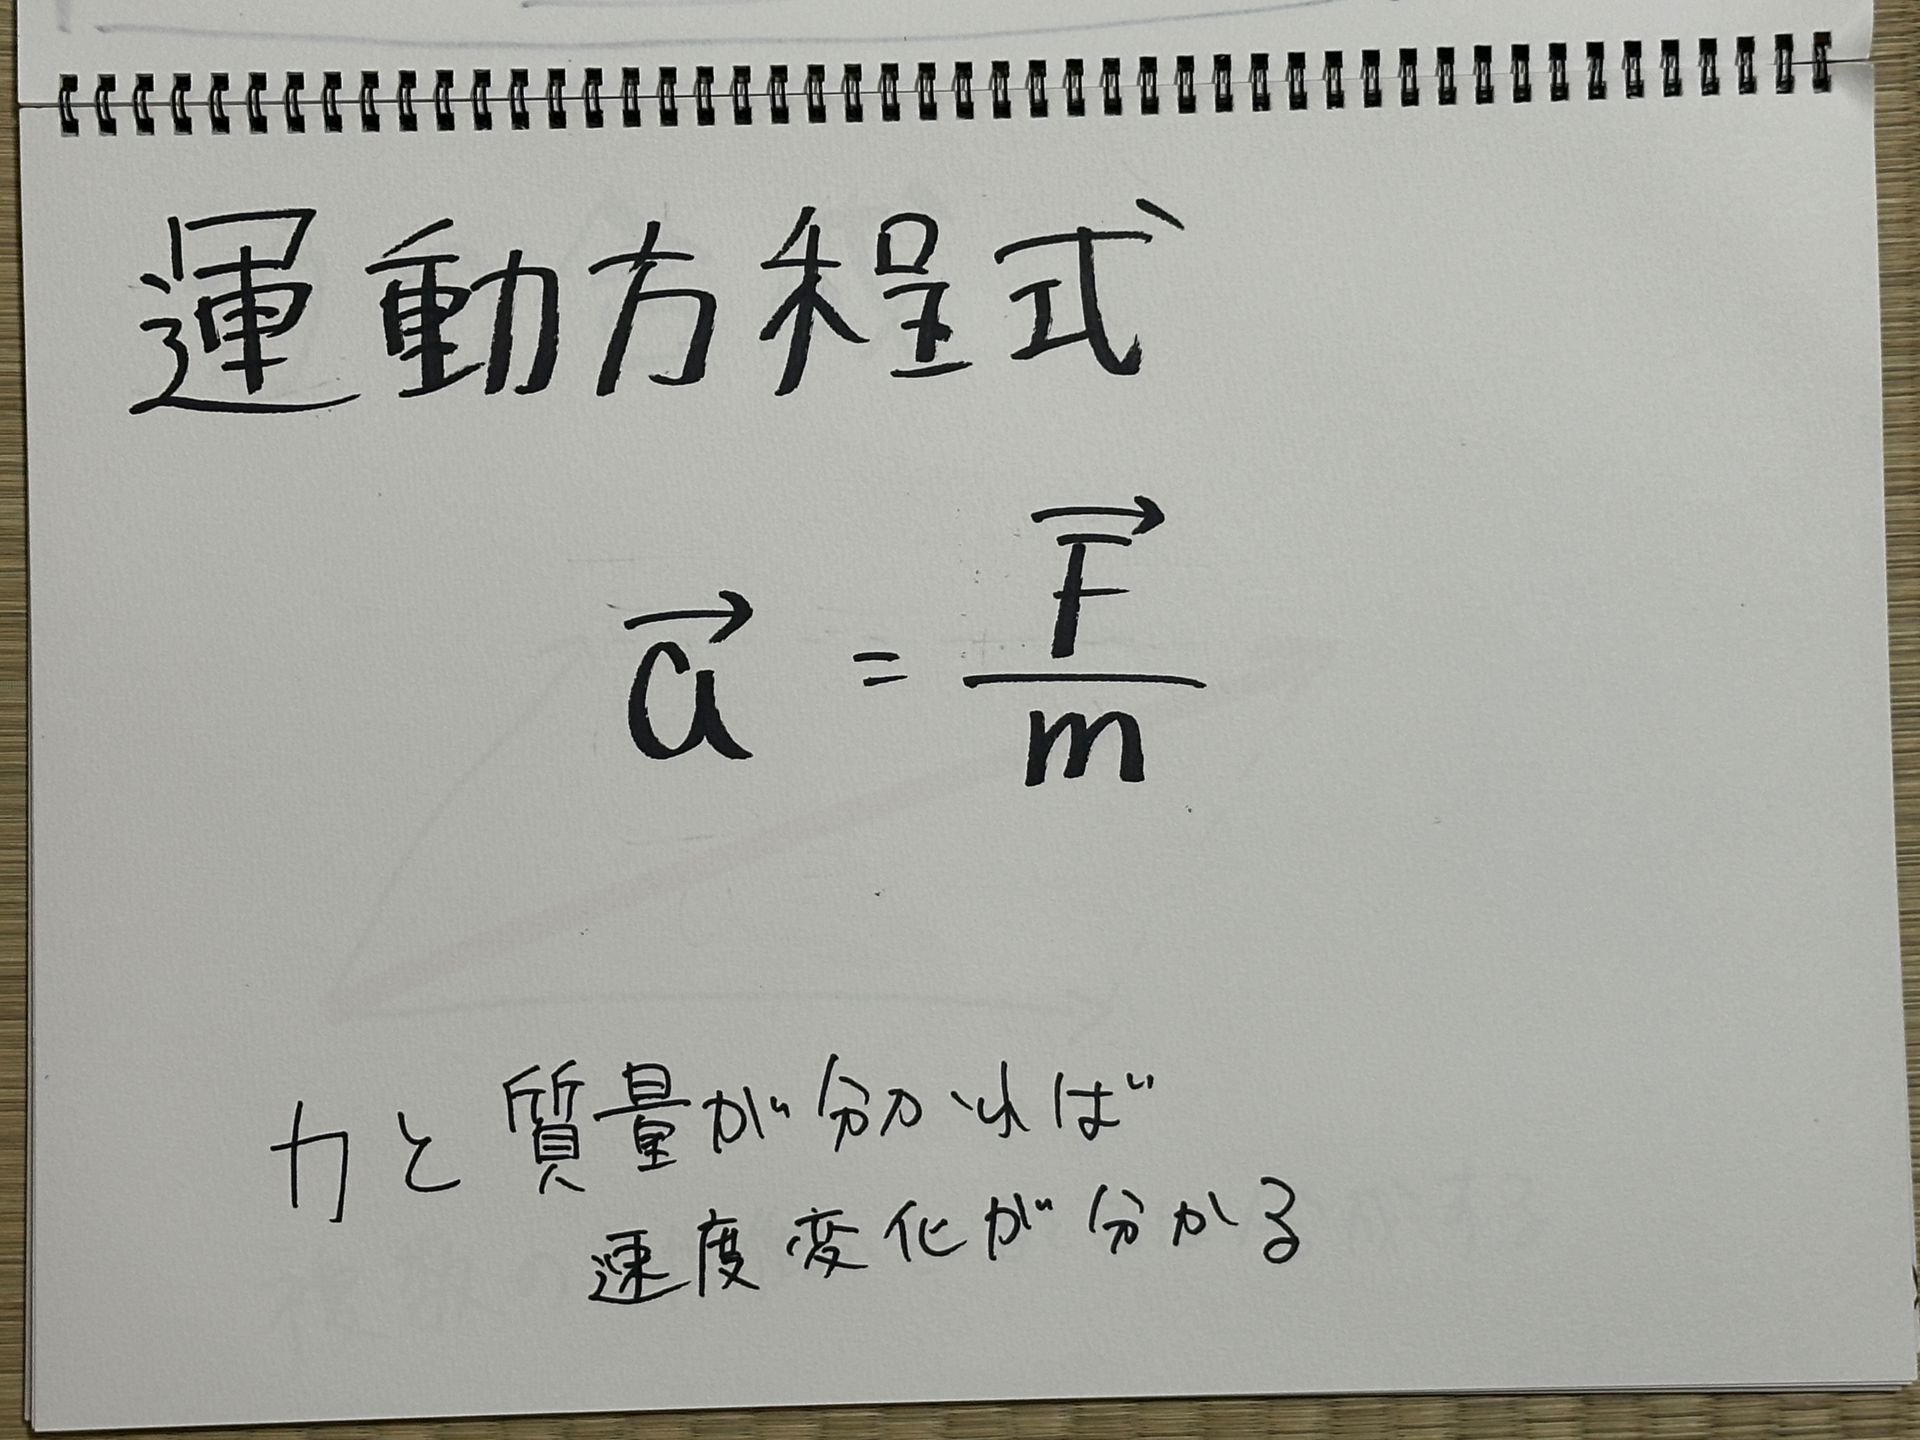 運動方程式
a⃗ = F⃗/m
力と質量が分かれば
速度変化が分かる